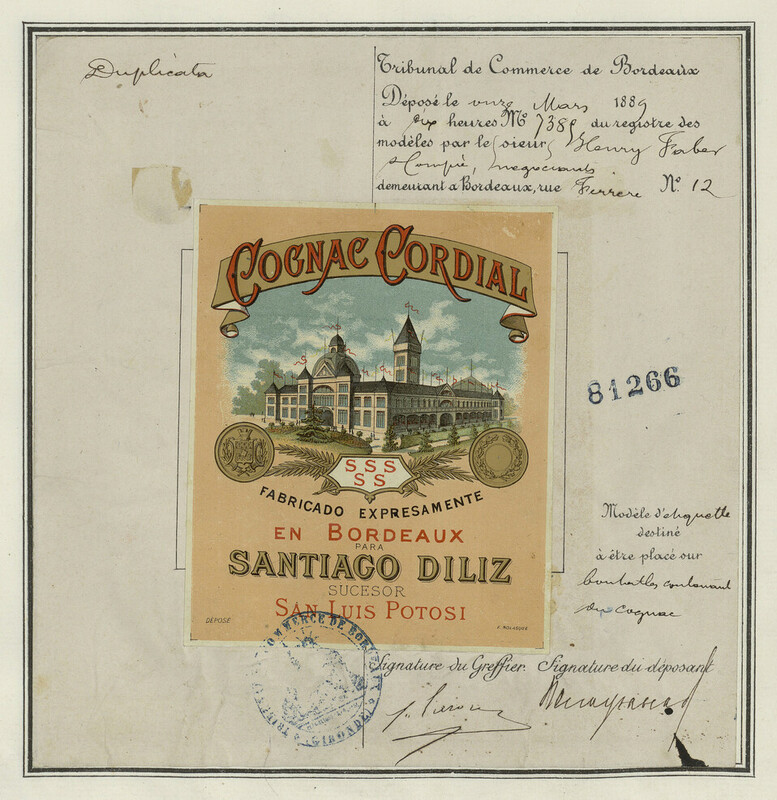 Duplicata
Tribunal de Commerce de Bordeaux
Déposé le onze Mars 1889
à dix heures No 7389 du registre des
modèles par le sieur Henry Faber
& Compie, negociants
demeurant à Bordeaux, rue Ferrere No 12
COGNAC CORDIAL
SSS
SS
FABRICADO EXPRESAMENTE
EN BORDEAUX
PARA
SANTIAGO DILIZ
SUCESOR
SAN LUIS POTOSI
DÉPOSÉ
81266
Modèle d'étiquette
destiné
à être placé sur
bouteilles contenant
du cognac
COMMERCE DE BORDEAUX
(GIRONDE)
Signature du Greffier. Signature du déposant